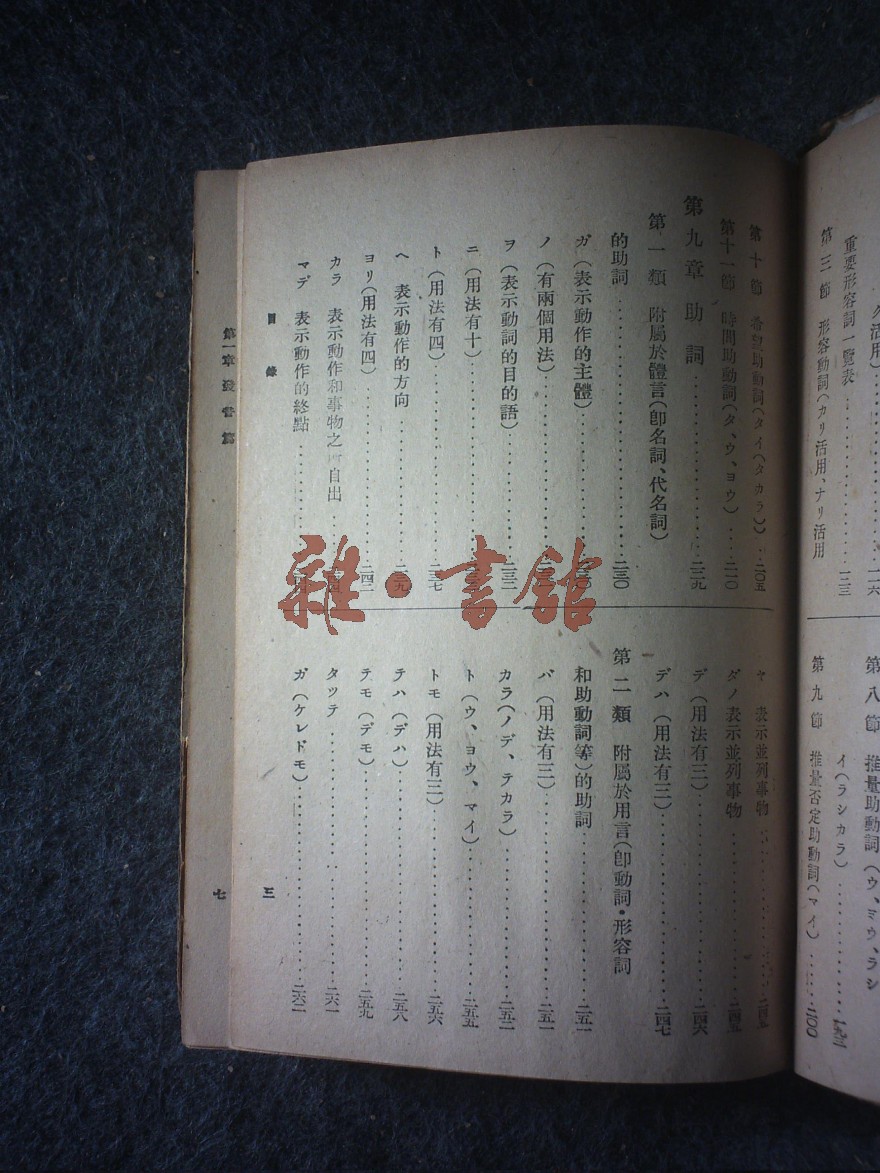 ク活用)‥‥‥一一六
重要形容詞一覽表‥‥‥一三三
第三節 形容動詞(カリ活用、ナリ活用
第八節 推量助動詞(ウ、ミウ、ラシ
イ(ラシカラ)‥‥‥一九三
第九節 推量否定助動詞(マイ)‥‥‥二〇〇
第十節 希望助動詞(タイ(タカラ))‥二〇五
第十一節 時間助動詞(タ、ウ、ヨウ)‥‥二一〇
第九章 助詞‥‥‥二二九
第一類 附屬於體言(卽名詞、代名詞)
的助詞‥‥‥二三〇
ガ(表示動作的主體)‥‥‥
ノ(有兩個用法)‥‥‥
ヲ(表示動詞的目的語)‥‥‥二三二
ニ(用法有十)‥‥‥
ト(用法有四)‥‥‥二三七
ヘ 表示動作的方向‥‥‥二三九
ヨリ(用法有四)‥‥‥二四二
カラ 表示動作和事物之 自出‥‥‥
マデ 表示動作的終點‥‥‥
ヤ 表示並列事物‥‥‥二四五
ダノ表示並列事物‥‥‥二四五
デ(用法有三)‥‥‥二四六
デハ(用法有三)‥‥‥二四七
第二類 附屬於用言(卽動詞・形容詞
和助動詞等)的助詞‥‥‥二五一
バ(用法有三)‥‥‥二五一
カラ(ノデ、テカラ)‥‥‥二五二
ト(ウ、ヨウ、マイ)‥‥‥二五五
トモ(用法有三)‥‥‥二五六
テハ(デハ)‥‥‥二五八
テモ(デモ)‥‥‥二五九
タツテ‥‥‥二六一
ガ(ケレドモ)‥‥‥二六二
目錄
三
第一章 發音篇
七
雜·書館